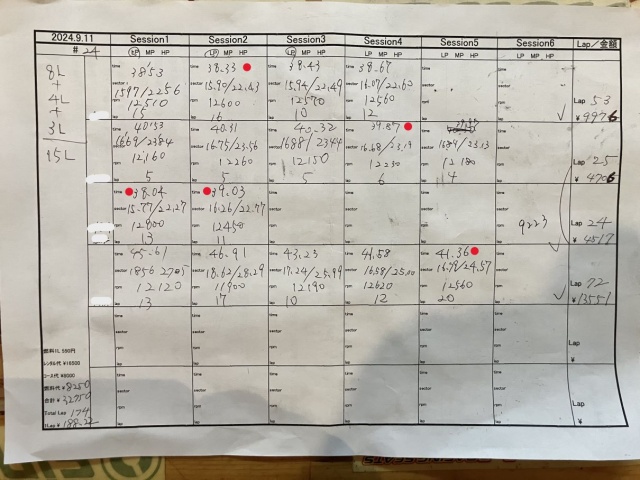 2024.9.11 Session1 Session2 Session3 Session4 Session5 Session6 Lap/金額
#24 LP MP HP LP MP HP LP MP HP LP MP HP LP MP HP LP MP HP
8L
+
4L
+
3L
15L
time 38'53 time 38.33 time 38.43 time 38.67 time time
sector 1597/2256 sector 15.90/22.43 sector 15.94/22.49 sector 16.07/22.60 sector sector
rpm 12510 rpm 12600 rpm 12570 rpm 12560 rpm rpm Lap 53
lap 15 lap 16 lap 10 lap 12 lap lap ¥9976
time 40'53 time 40.31 time 40.32 time 39.87 time time
sector 1669/2384 sector 16.75/23.56 sector 1688/2344 sector 16.68/23.19 sector sector
rpm 12160 rpm 12260 rpm 12150 rpm 12230 rpm 12180 rpm Lap 25
lap 5 lap 5 lap 5 lap 6 lap 4 lap ¥4706
time 38.04 time 39.03 time time time time
sector 15.77/22.27 sector 16.26/22.77 sector sector sector sector
rpm 12800 rpm 12450 rpm rpm rpm rpm 9223 Lap 24
lap 13 lap 11 lap lap lap lap ¥4517
time 45.61 time 46.91 time 43.23 time 41.58 time 41.36 time
sector 1856 2705 sector 18.62/28.29 sector 17.24/25.99 sector 16.58/25.00 sector 16.79/24.57 sector
rpm 12120 rpm 11900 rpm 12190 rpm 12620 rpm 12560 rpm Lap 72
lap 13 lap 17 lap 10 lap 12 lap 20 lap ¥13551
time time time time time time
sector sector sector sector sector sector
rpm rpm rpm rpm rpm rpm Lap
lap lap lap lap lap lap ¥
燃料1L 550円
レンタル代 ¥16500
コース代 ¥8000
燃料代 ¥8250
合計 ¥32750
Total Lap 174
1Lap ¥188.22
time time time time time time
sector sector sector sector sector sector
rpm rpm rpm rpm rpm rpm Lap
lap lap lap lap lap lap ¥